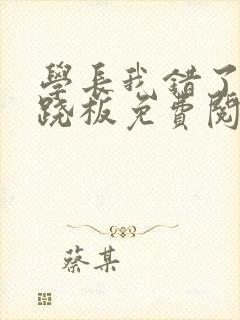 學長我錯了
跷板免費閱
蔡某